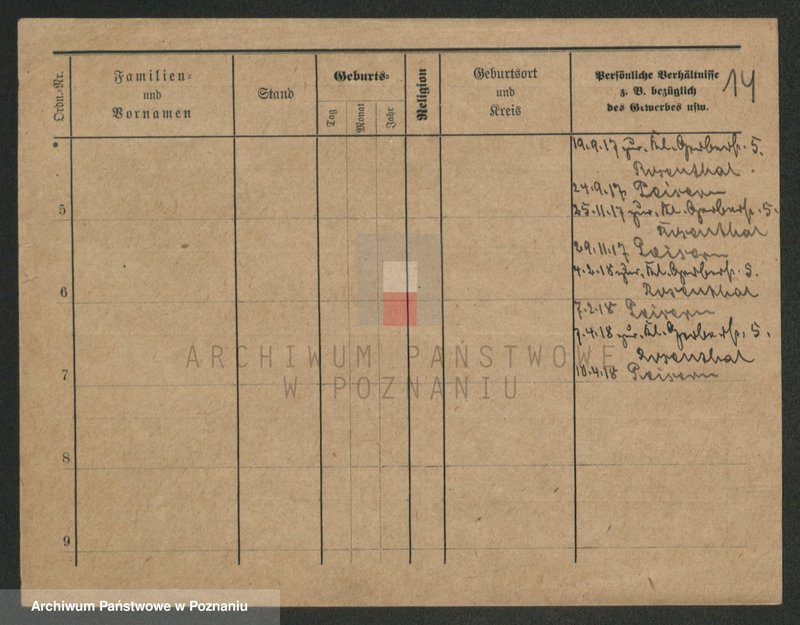 Ordn.-Nr.
Familien-
und
Vornamen
Stand
Geburts-
Tag
Monat
Jahr
Religion
Geburtsort
und
Kreis
Persönliche Verhältnisse
z. B. bezüglich
des Gewerbes usw.
14
19.9.17 zur. Kl. Gerberstr. 5.
Rosenthal.
24.9.17. Peisern
25.11.17 zur. Kl. Gerberstr. 5.
Rosenthal
29.11.17 Peisern
4.2.18 zur. Kl. Gerberstr. 5.
Rosenthal
7.2.18 Peisern
7.4.18 zur. Kl. Gerberstr. 5.
Rosenthal
10.4.18 Peisern
5
6
7
8
9
ARCHIWUM PAŃSTWOWE
W POZNANIU
Archiwum Państwowe w Poznaniu